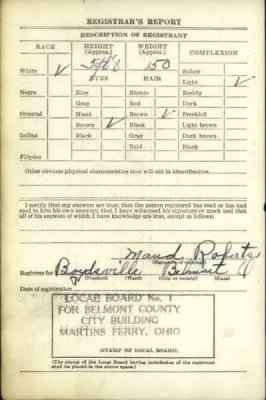 REGISTRAR'S REPORT
DESCRIPTION OF REGISTRANT
RACE HEIGHT (Approx.) WEIGHT (Approx.) COMPLEXION
White ✓ 5 ft 8 150 Sallow
EYES HAIR Light ✓
Negro Blue Blonde Ruddy
Gray Red Dark
Oriental Hazel Brown ✓ Freckled
Brown ✓ Black Light brown
Indian Black Gray Dark brown
Bald Black
Filipino
Other obvious physical characteristics that will aid in identification
I certify that my answers are true; that the person registered has read or has had
read to him his own answers; that I have witnessed his signature or mark and that
all of his answers of which I have knowledge are true, except as follows:
Maud Roberts
(Signature of registrar)
Registrar for Boydsville Belmont
(Precinct) (Ward) (City or county) (State)
Date of registration
LOCAL BOARD No. 1
FOR BELMONT COUNTY
CITY BUILDING
MARTINS FERRY, OHIO
(STAMP OF LOCAL BOARD)
(The stamp of the Local Board having jurisdiction of the registrant
shall be placed in the above space.)